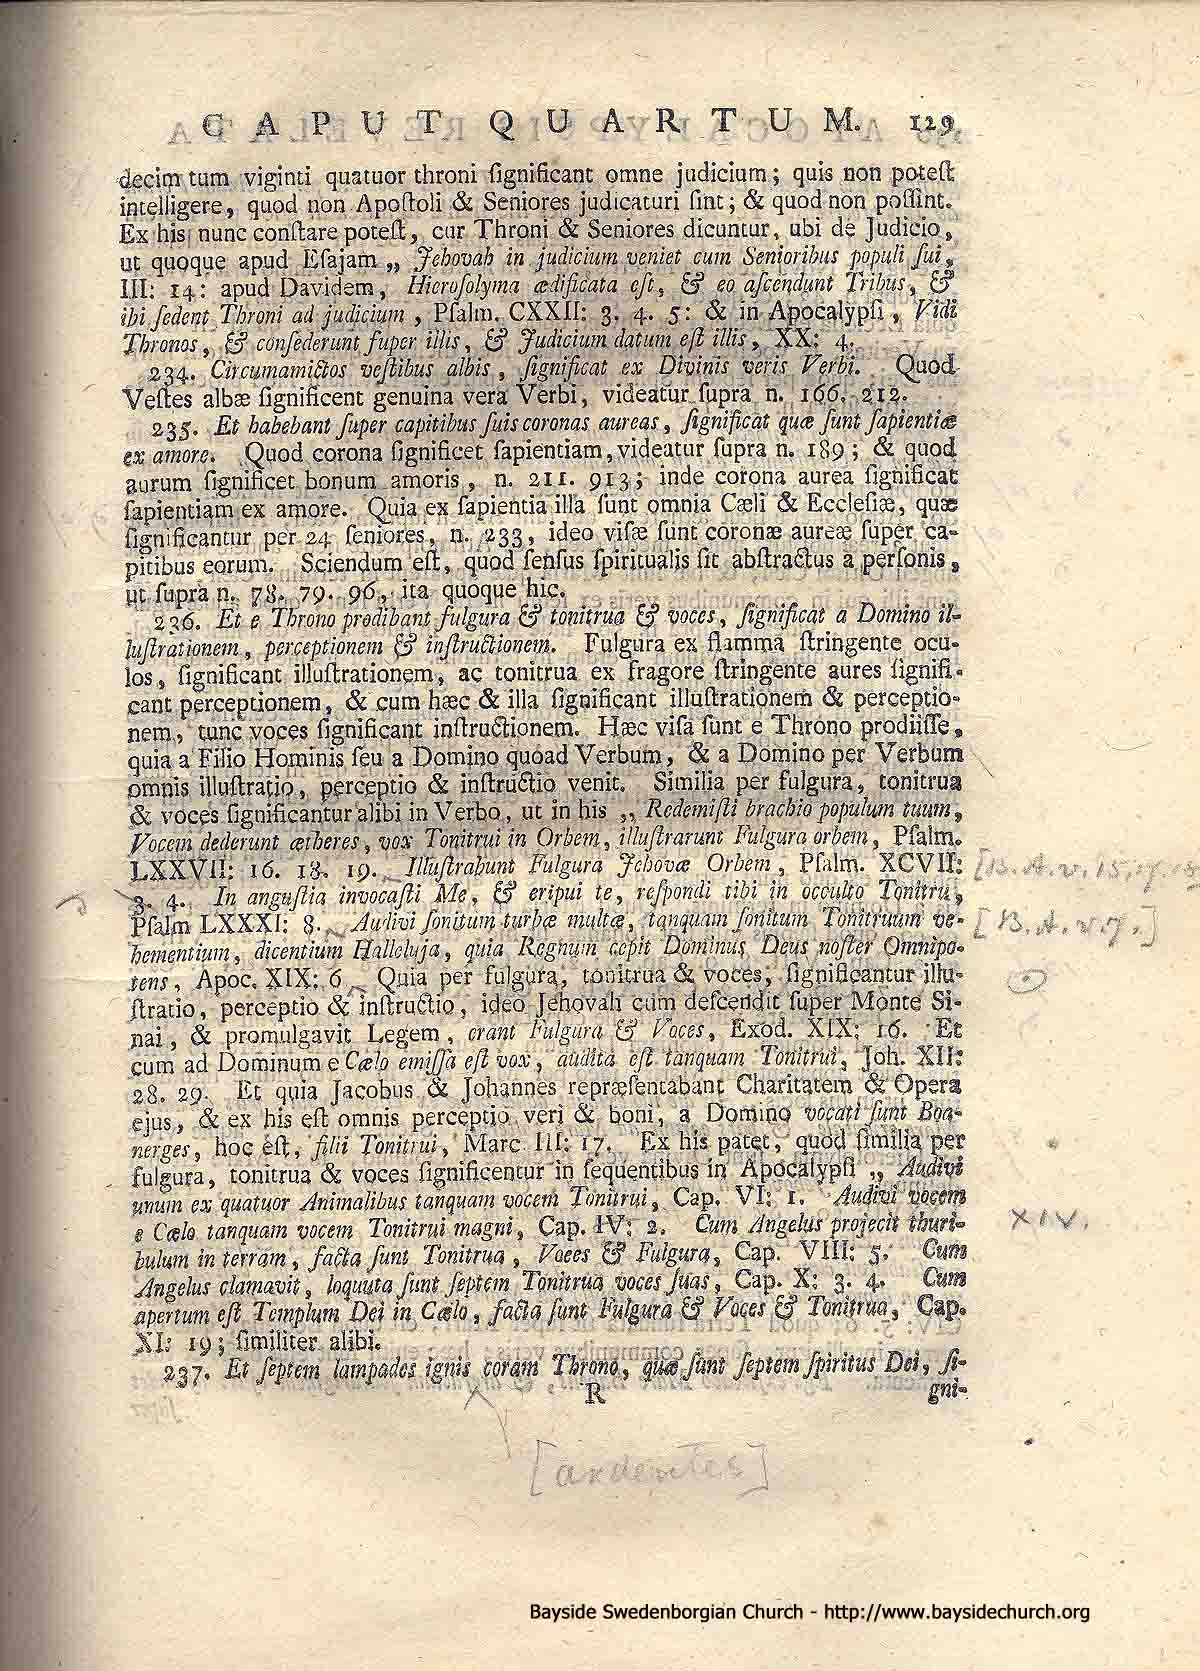 CAPUT QUARTUM. 129
decim tum viginti quatuor throni ſignificant omne judicium; quis non poteſt
intelligere, quod non Apoſtoli & Seniores judicaturi ſint; & quod non poſſint.
Ex his nunc conſtare poteſt, cur Throni & Seniores dicuntur, ubi de Judicio,
ut quoque apud Eſajam „ Jehovah in judicium veniet cum Senioribus populi ſui,
III: 14: apud Davidem, Hieroſolyma ædificata eſt, & eo aſcendunt Tribus, &
ibi ſedent Throni ad judicium, Pſalm. CXXII: 3. 4. 5: & in Apocalypſi, Vidi
Thronos, & conſederunt ſuper illis, & Judicium datum eſt illis, XX: 4.
234. Circumamictos veſtibus albis, ſignificat ex Divinis veris Verbi. Quod
Veſtes albæ ſignificent genuina vera Verbi, videatur ſupra n. 166. 212.
235. Et habebant ſuper capitibus ſuis coronas aureas, ſignificat quæ ſunt ſapientiæ
ex amore. Quod corona ſignificet ſapientiam, videatur ſupra n. 189; & quod
aurum ſignificet bonum amoris, n. 211. 913; inde corona aurea ſignificat
ſapientiam ex amore. Quia ex ſapientia illa ſunt omnia Cæli & Eccleſiæ, quæ
ſignificantur per 24 ſeniores, n. 233, ideo viſæ ſunt coronæ aureæ ſuper ca-
pitibus eorum. Sciendum eſt, quod ſenſus ſpiritualis ſit abſtractus a perſonis,
ut ſupra n. 78. 79. 96, ita quoque hic.
236. Et e Throno prodibant fulgura & tonitrua & voces, ſignificat a Domino il-
luſtrationem, perceptionem & inſtructionem. Fulgura ex flamma ſtringente ocu-
los, ſignificant illuſtrationem, ac tonitrua ex fragore ſtringente aures ſignifi-
cant perceptionem, & cum hæc & illa ſignificant illuſtrationem & perceptio-
nem, tunc voces ſignificant inſtructionem. Hæc viſa ſunt e Throno prodiiſſe,
quia a Filio Hominis ſeu a Domino quoad Verbum, & a Domino per Verbum
omnis illuſtratio, perceptio & inſtructio venit. Similia per fulgura, tonitrua
& voces ſignificantur alibi in Verbo, ut in his „ Redemiſti brachio populum tuum,
Vocem dederunt ætheres, vox Tonitrui in Orbem, illuſtrarunt Fulgura orbem, Pſalm.
LXXVII: 16. 18. 19. Illuſtrabunt Fulgura Jehovæ Orbem, Pſalm. XCVII: [B. A. v. 15, 17. 18
3. 4. In anguſtia invocaſti Me, & eripui te, reſpondi tibi in occulto Tonitru,
Pſalm LXXXI: 8. Audivi ſonitum turbæ multæ, tanquam ſonitum Tonitruum ve- [B. A. v. 7.]
hementium, dicentium Halleluja, quia Regnum cepit Dominus Deus noſter Omnipo-
tens, Apoc. XIX: 6 Quia per fulgura, tonitrua & voces, ſignificantur illu-
ſtratio, perceptio & inſtructio, ideo Jehovah cum deſcendit ſuper Monte Si-
nai, & promulgavit Legem, erant Fulgura & Voces, Exod. XIX: 16. Et
cum ad Dominum e Cælo emiſſa eſt vox, audita eſt tanquam Tonitrui, Joh. XII:
28. 29. Et quia Jacobus & Johannes repræſentabant Charitatem & Opera
ejus, & ex his eſt omnis perceptio veri & boni, a Domino vocati ſunt Boa-
nerges, hoc eſt, filii Tonitrui, Marc III: 17. Ex his patet, quod ſimilia per
fulgura, tonitrua & voces ſignificentur in ſequentibus in Apocalypſi „ Audivi
unum ex quatuor Animalibus tanquam vocem Tonitrui, Cap. VI: 1. Audivi vocem
e Cælo tanquam vocem Tonitrui magni, Cap. IV: 2. Cum Angelus projecit thuri- XIV.
bulum in terram, facta ſunt Tonitrua, Voees & Fulgura, Cap. VIII: 5. Cum
Angelus clamavit, loquuta ſunt ſeptem Tonitrua voces ſuas, Cap. X: 3. 4. Cum
apertum eſt Templum Dei in Cælo, facta ſunt Fulgura & Voces & Tonitrua, Cap.
XI: 19; ſimiliter alibi.
237. Et ſeptem lampades ignis coram Throno, quæ ſunt ſeptem ſpiritus Dei, ſi-
R gni-
[ardentes]
Bayside Swedenborgian Church - http://www.baysidechurch.org